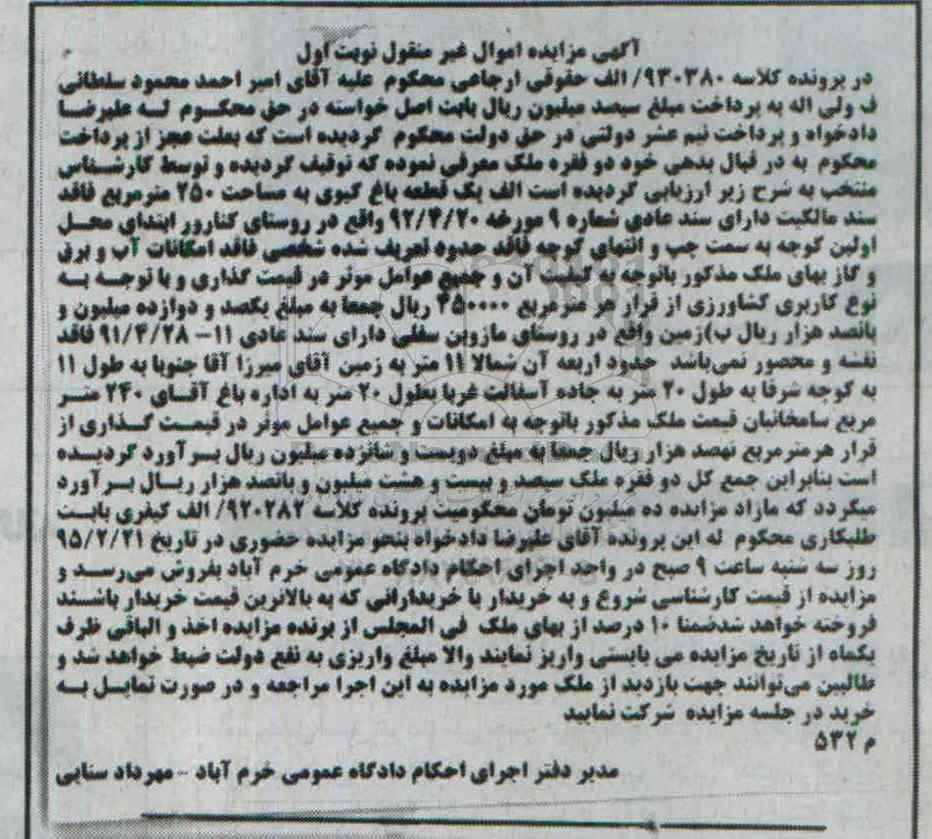 آگهی مزایده اموال غیر منقول نوبت اول
در پرونده کلاسه ۹۳۰۳۸۰/ الف حقوقی ارجاعی محکوم علیه آقای امیر احمد محمود سلطانی
ف ولی اله به پرداخت مبلغ سیصد میلیون ریال بابت اصل خواسته در حق محکوم له علیرضا
دادخواه و پرداخت نیم عشر دولتی در حق دولت محکوم گردیده است که بعلت عجز از پرداخت
محکوم به در قبال بدهی خود دو فقره ملک معرفی نموده که توقیف گردیده و توسط کارشناس
منتخب به شرح زیر ارزیابی گردیده است الف یک قطعه باغ گیوی به مساحت ۲۵۰ مترمربع فاقد
سند مالکیت دارای سند عادی شماره ۹ مورخه ۹۲/۴/۲۰ واقع در روستای کنارور ابتدای محل
اولین کوچه به سمت چپ و انتهای کوچه فاقد حدود تعریف شده شخصی فاقد امکانات آب و برق
و گاز بهای ملک مذکور باتوجه به کیفیت آن و جمیع عوامل موثر در قیمت گذاری و با توجه به
نوع کاربری کشاورزی از قرار هر مترمربع ۴۵۰۰۰۰ ریال جمعا به مبلغ یکصد و دوازده میلیون و
پانصد هزار ریال ب)زمین واقع در روستای مازوبن سفلی دارای سند عادی ۱۱- ۹۱/۴/۲۸ فاقد
نقشه و محصور نمی‌باشد حدود اربعه آن شمالا ۱۱ متر به زمین آقای میرزا آقا جنوبا به طول ۱۱
به کوچه شرقا به طول ۲۰ متر به جاده آسفالت غربا بطول ۲۰ متر به اداره باغ آقای ۲۴۰ متر
مربع سامخانیان قیمت ملک مذکور باتوجه به امکانات و جمیع عوامل موثر در قیمت گذاری از
قرار هرمترمربع نهصد هزار ریال جمعا به مبلغ دویست و شانزده میلیون ریال برآورد گردیده
است بنابراین جمع کل دو فقره ملک سیصد و بیست و هشت میلیون و پانصد هزار ریال برآورد
میگردد که مازاد مزایده ده میلیون تومان محکومیت پرونده کلاسه ۹۲۰۲۸۲/ الف کیفری بابت
طلبکاری محکوم له این پرونده آقای علیرضا دادخواه بنحو مزایده حضوری در تاریخ ۹۵/۲/۲۱
روز سه شنبه ساعت ۹ صبح در واحد اجرای احکام دادگاه عمومی خرم آباد بفروش می‌رسد و
مزایده از قیمت کارشناسی شروع و به خریدار یا خریدارانی که به بالاترین قیمت خریدار باشند
فروخته خواهد شدضمنا ۱۰ درصد از بهای ملک فی المجلس از برنده مزایده اخذ و الباقی ظرف
یکماه از تاریخ مزایده می بایستی واریز نمایند والا مبلغ واریزی به نفع دولت ضبط خواهد شد و
طالبین می‌توانند جهت بازدید از ملک مورد مزایده به این اجرا مراجعه و در صورت تمایل به
خرید در جلسه مزایده شرکت نمایید
م ۵۳۲
مدیر دفتر اجرای احکام دادگاه عمومی خرم آباد - مهرداد سنایی